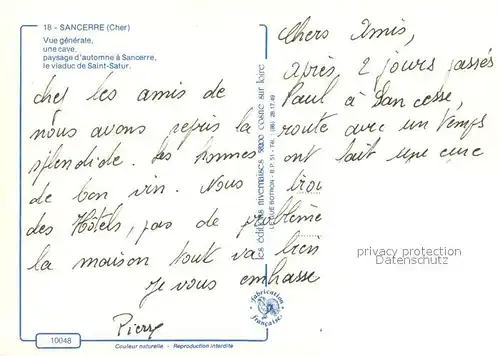 18 - SANCERRE (Cher)
Vue générale,
une cave,
paysage d'automne à Sancerre,
le viaduc de Saint-Satur.
Chers Amis,
Après 2 jours passés
chez les amis de Paul à Sancesse,
nous avons repris la route avec un temps
splendide. Les hommes ont fait une cure
de bon vin. Nous
des Hôtels, pas de problème
la maison tout va bien
Je vous embrasse
Pierre
les éditions nivernaises 58200 cosne sur loire
BOTRON - B.P. 51 - Tél. : (86) 28.17.49
Fabrication
Française
10048
Couleur naturelle - Reproduction interdite
privacy protection
Datenschutz